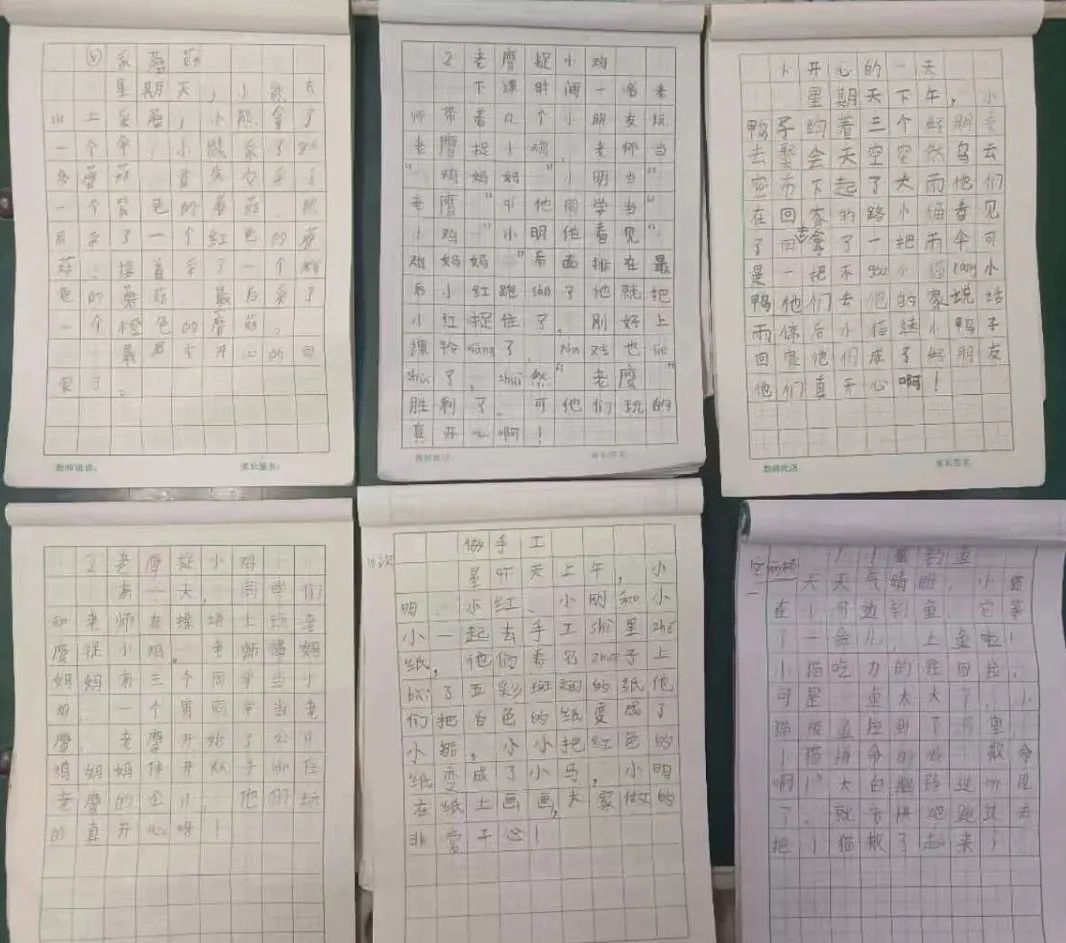 采蘑菇
星期天，小熊去
山上采着，小熊拿了
一个伞，小熊采了
多蘑菇，首先它采了
一个紫色的蘑菇，然
后采了一个红色的蘑
菇，接着采了一个
色的蘑菇，最后采了
一个橙色的蘑菇。
最后它开心的回
家了。
教师批语：
家长签名：
2 老鹰捉小鸡
下课时间一到老
师带着几个小朋友玩
老鹰捉小鸡，老师当
“鸡妈妈”小明当“
老鹰”其他同学当“
小鸡”小明他看见“
鸡妈妈”后面排在最
后小红跑 了他就把
小红捉住了，刚好上
课铃 xiǎng 了， 戏也
shù 了，shuī 然“老鹰”
胜利了，可他们玩的
真开心啊！
教师批语：
家长签名
小开心的一天
星期天下午，小
鸭子约着三个好朋友
去聚会天空突然乌云
密布下起了大雨他们
在回家的路小猫看见
了回去拿了一把雨伞可
是一把不gòu小猫ràng小
鸭他们去他的家
雨停后小猫送小鸭子
回家他们成了好朋友
他们真开心啊！
教师批语
家长签名
2 老鹰捉小鸡
有一天，同学们
和老师在操场上玩老
鹰捉小鸡。老师当妈
妈妈有三个同学当小
鸡，一个男同学当老
鹰，老鹰开始了
鸡妈妈伸开双手 住
老鹰的 ，他们玩
的真开心呀！
做手工
星期天上午，小
明、小红、小刚和小
小一起去手工shì里zhé
纸，他们看见zhuō子上
bǎi了五彩斑斓的纸他
们把白色的纸变成了
小船，小小把红色的
纸变成了小马，小明
在纸上画画，大家做的
非常开心！
小猫钓鱼
天天气晴朗，小猫
在小河边钓鱼，它等
了一会儿，上鱼啦！
小猫吃力的往回拉，
可是，鱼太大了，小
猫被鱼拉到了河里
小猫拼命的喊“救命
啊！”大白鹅路过听见
了，就 快 跳进去
把小猫救了起来！